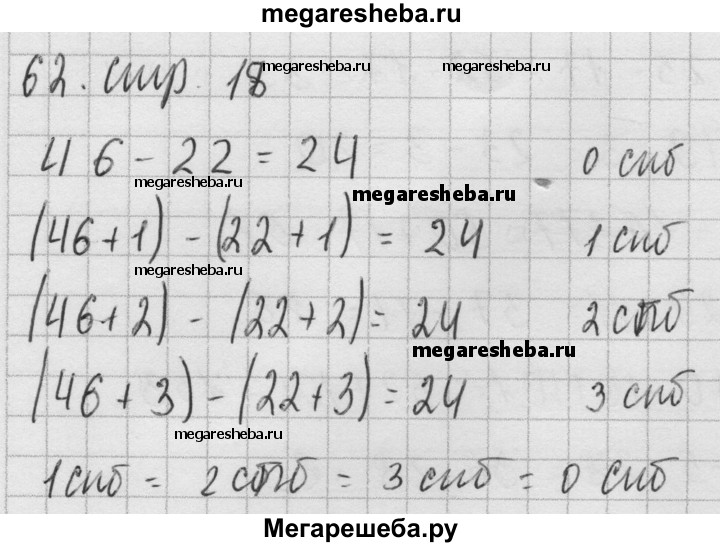 megaresheba.ru
62. стр. 18 megaresheba.ru megaresheba.ru
46 - 22 = 24 0 спб
megaresheba.ru
megaresheba.ru
(46 + 1) - (22 + 1) = 24 1 спб
megaresheba.ru
(46 + 2) - (22 + 2) = 24 2 спб
megaresheba.ru
(46 + 3) - (22 + 3) = 24 3 спб
megaresheba.ru
1 спб = 2 спб = 3 спб = 0 спб
Мегарешеба.ру